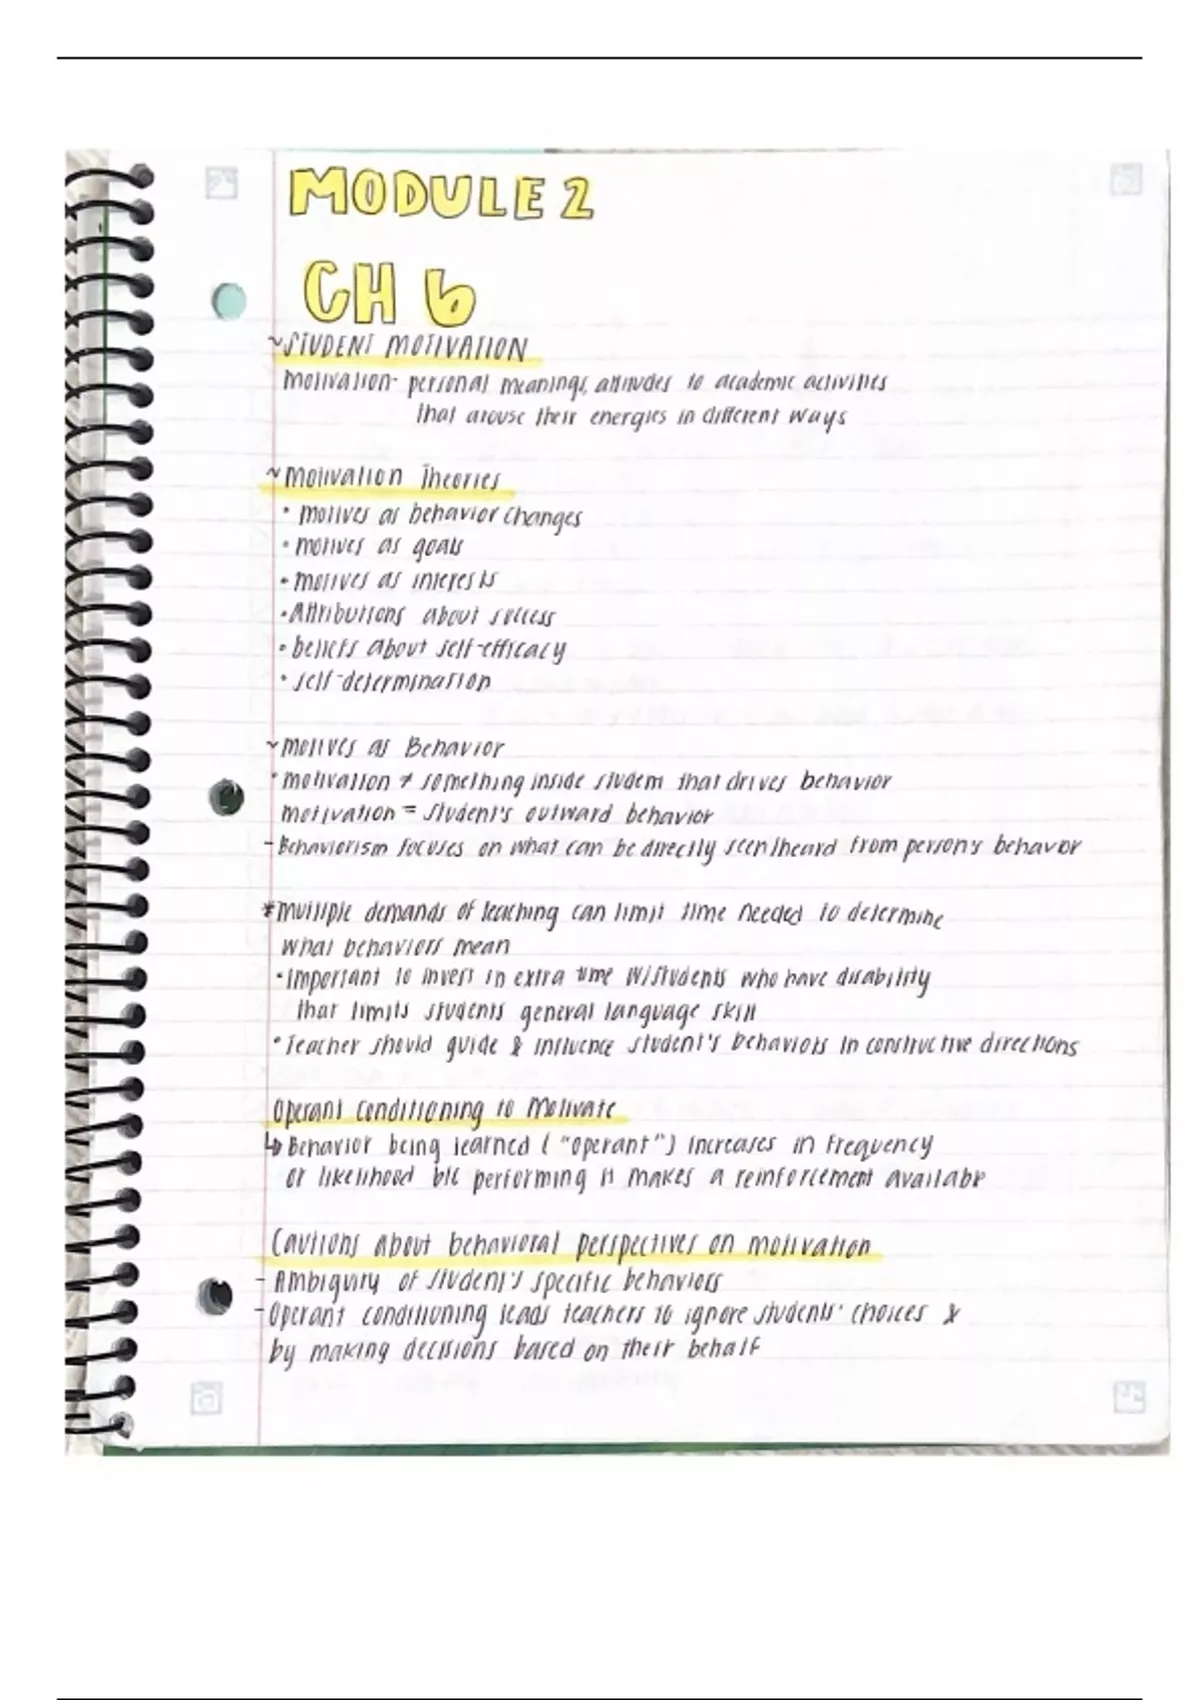 MODULE 2
CH 6
~STUDENT MOTIVATION
Motivation- personal meanings, attitudes to academic activities
that arouse their energies in different ways
~Motivation Theories
• motives as behavior changes
• motives as goals
• motives as interests
• Attributions about success
• beliefs about self-efficacy
• self-determination
~motives as Behavior
• motivation ≠ something inside student that drives behavior
motivation = student's outward behavior
- Behaviorism focuses on what can be directly seen/heard from person's behavior
*multiple demands of teaching can limit time needed to determine
what behaviors mean
• Important to invest in extra time w/students who have disability
that limits students general language skill
• Teacher should guide & influence student's behaviors in constructive directions
Operant Conditioning to Motivate
↳ Behavior being learned ("operant") increases in frequency
or likelihood b/c performing it makes a reinforcement available
Cautions about behavioral perspectives on motivation
- Ambiguity of student's specific behaviors
- Operant conditioning leads teachers to ignore students' choices &
by making decisions based on their behalf